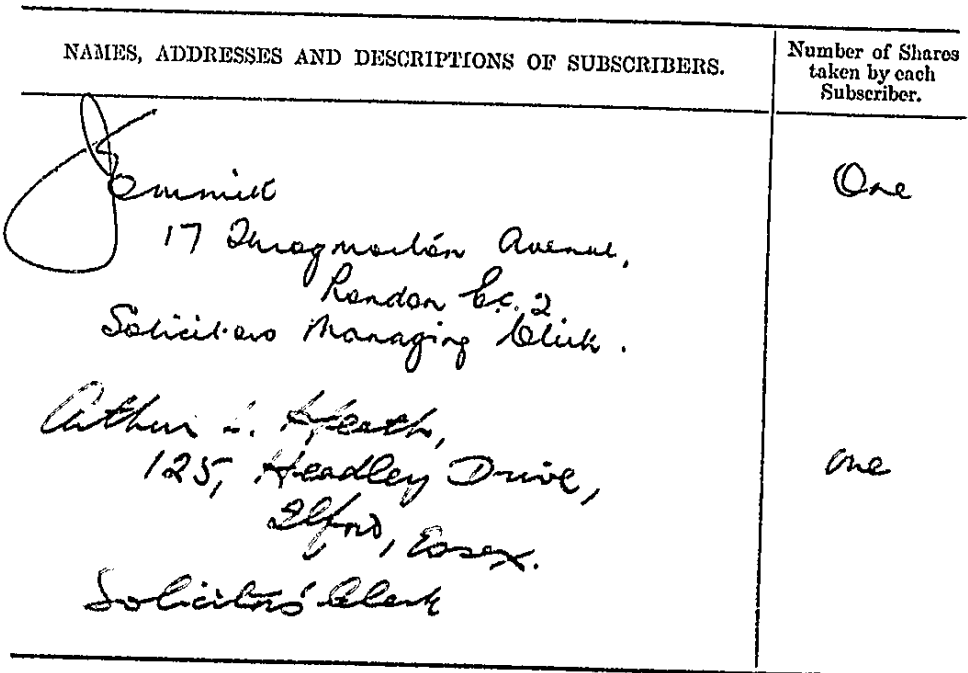 NAMES, ADDRESSES AND DESCRIPTIONS OF SUBSCRIBERS.
Number of Shares
taken by each
Subscriber.
One
17 Throgmorton Avenue,
London E.C.2
Solicitors Managing Clerk.
Arthur L. Heath,
125, Headley Drive,
one
Ilford, Essex.
Solicitors' Clerk